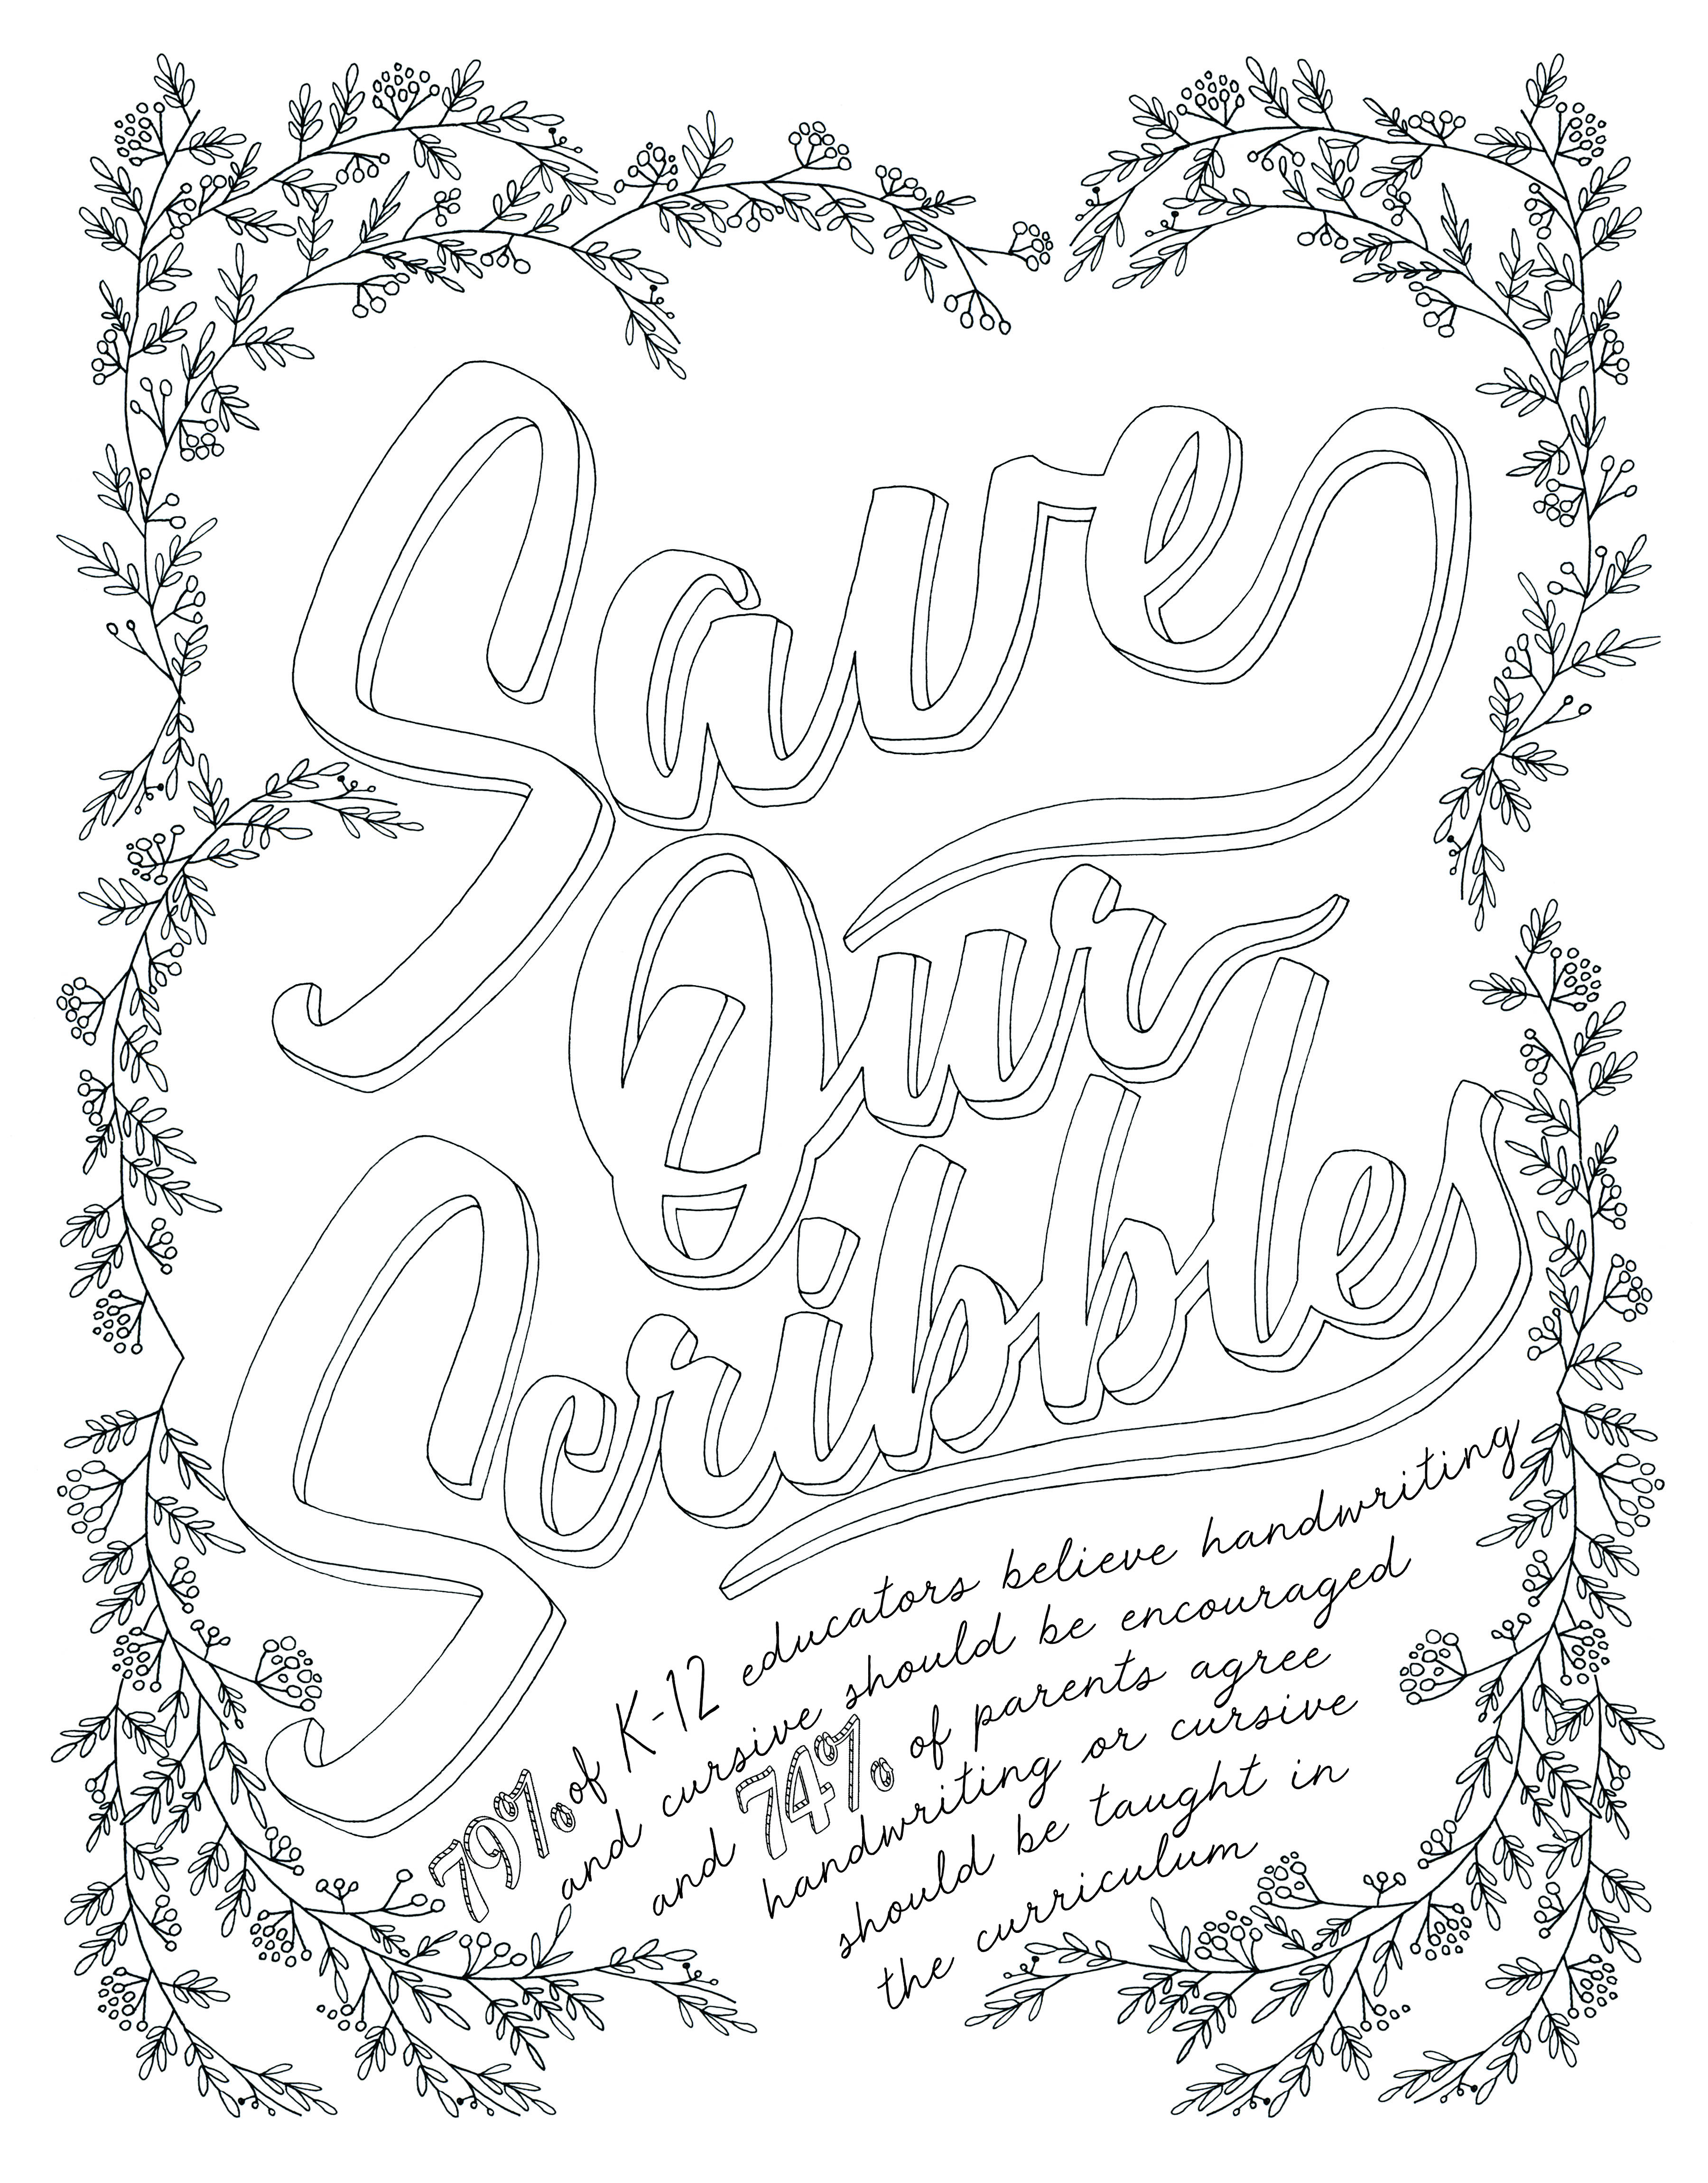 Save
Our
Scribble
79% of K-12 educators believe handwriting
and cursive should be encouraged
and 74% of parents agree
handwriting or cursive
should be taught in
the curriculum